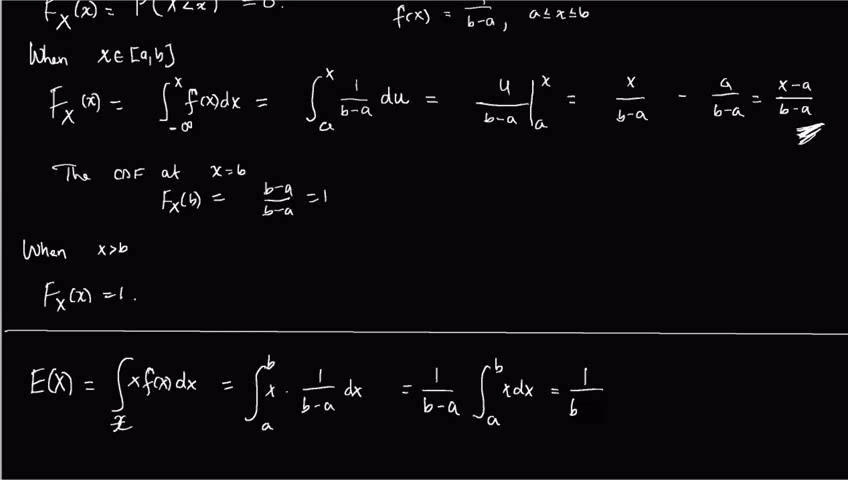 F_X(x) = P(X<x) = 0.
f(x) = 1/(b-a), a≤x≤b
When x∈[a,b]
F_X(x) = ∫_{-∞}^{x} f(x)dx = ∫_a^x 1/(b-a) du = u/(b-a) |_a^x = x/(b-a) - a/(b-a) = (x-a)/(b-a)
The CDF at x=b
F_X(b) = (b-a)/(b-a) = 1
When x>b
F_X(x) = 1.
E(X) = ∫_x x f(x) dx = ∫_a^b x · 1/(b-a) dx = 1/(b-a) ∫_a^b x dx = 1/b